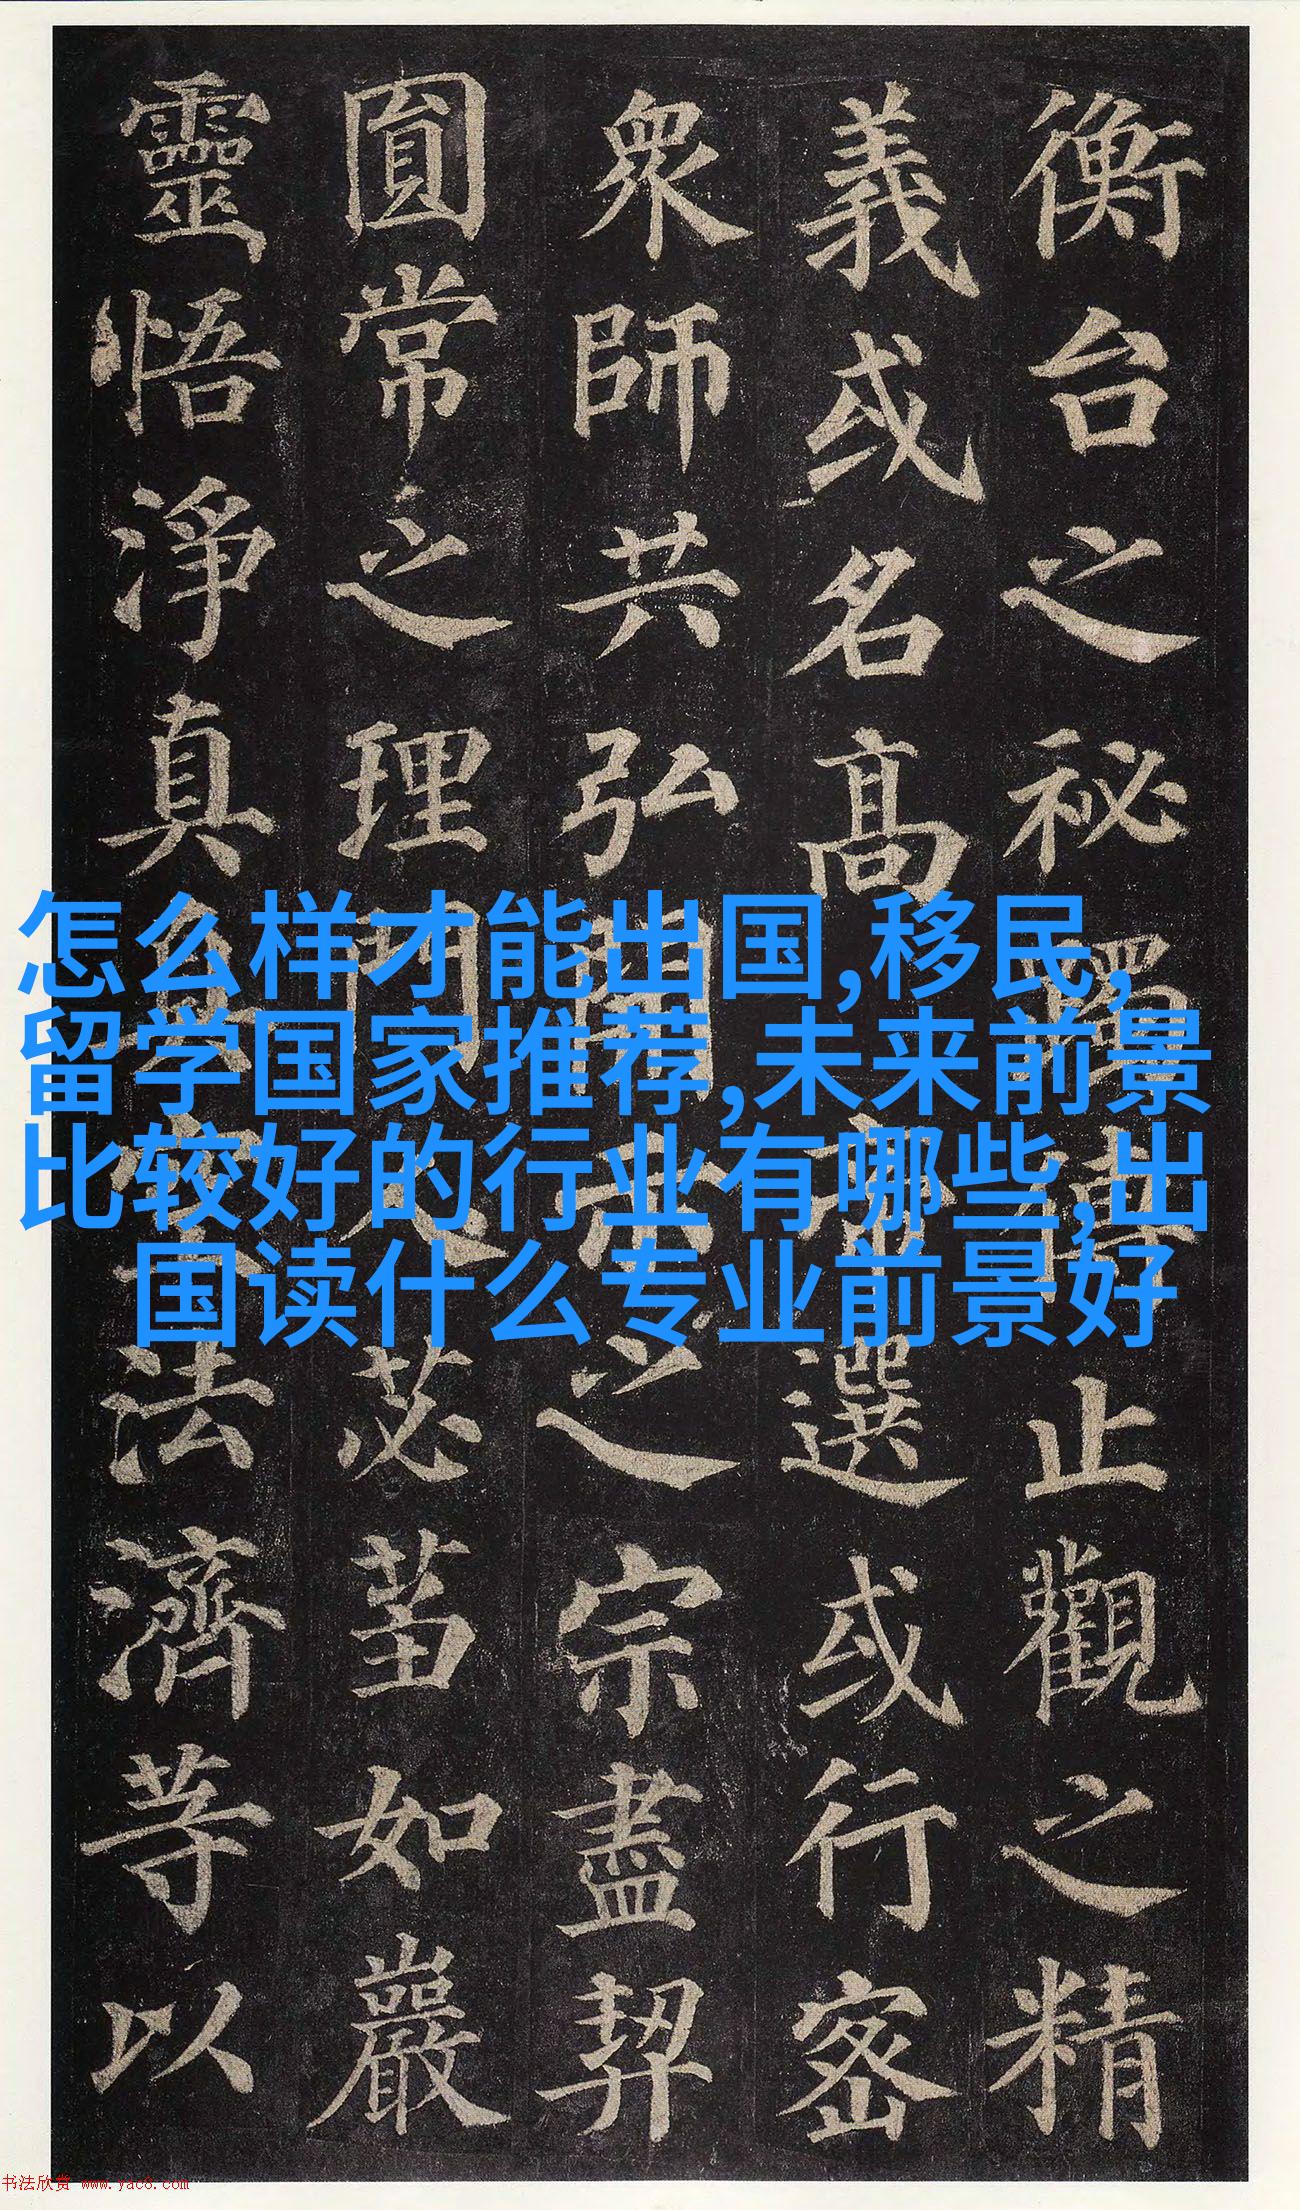 衡台之秘躅傳止觀之精
義或名高帝選或行密
眾師共弘開示之宗盡契
圎常之理門人苾芻如巖
靈悟淨真真空法濟等以
怎么样才能出国,移民,
留学国家推荐,未来前景
比较好的行业有哪些,出
国读什么专业前景好
书法欣赏 www.yac8.com